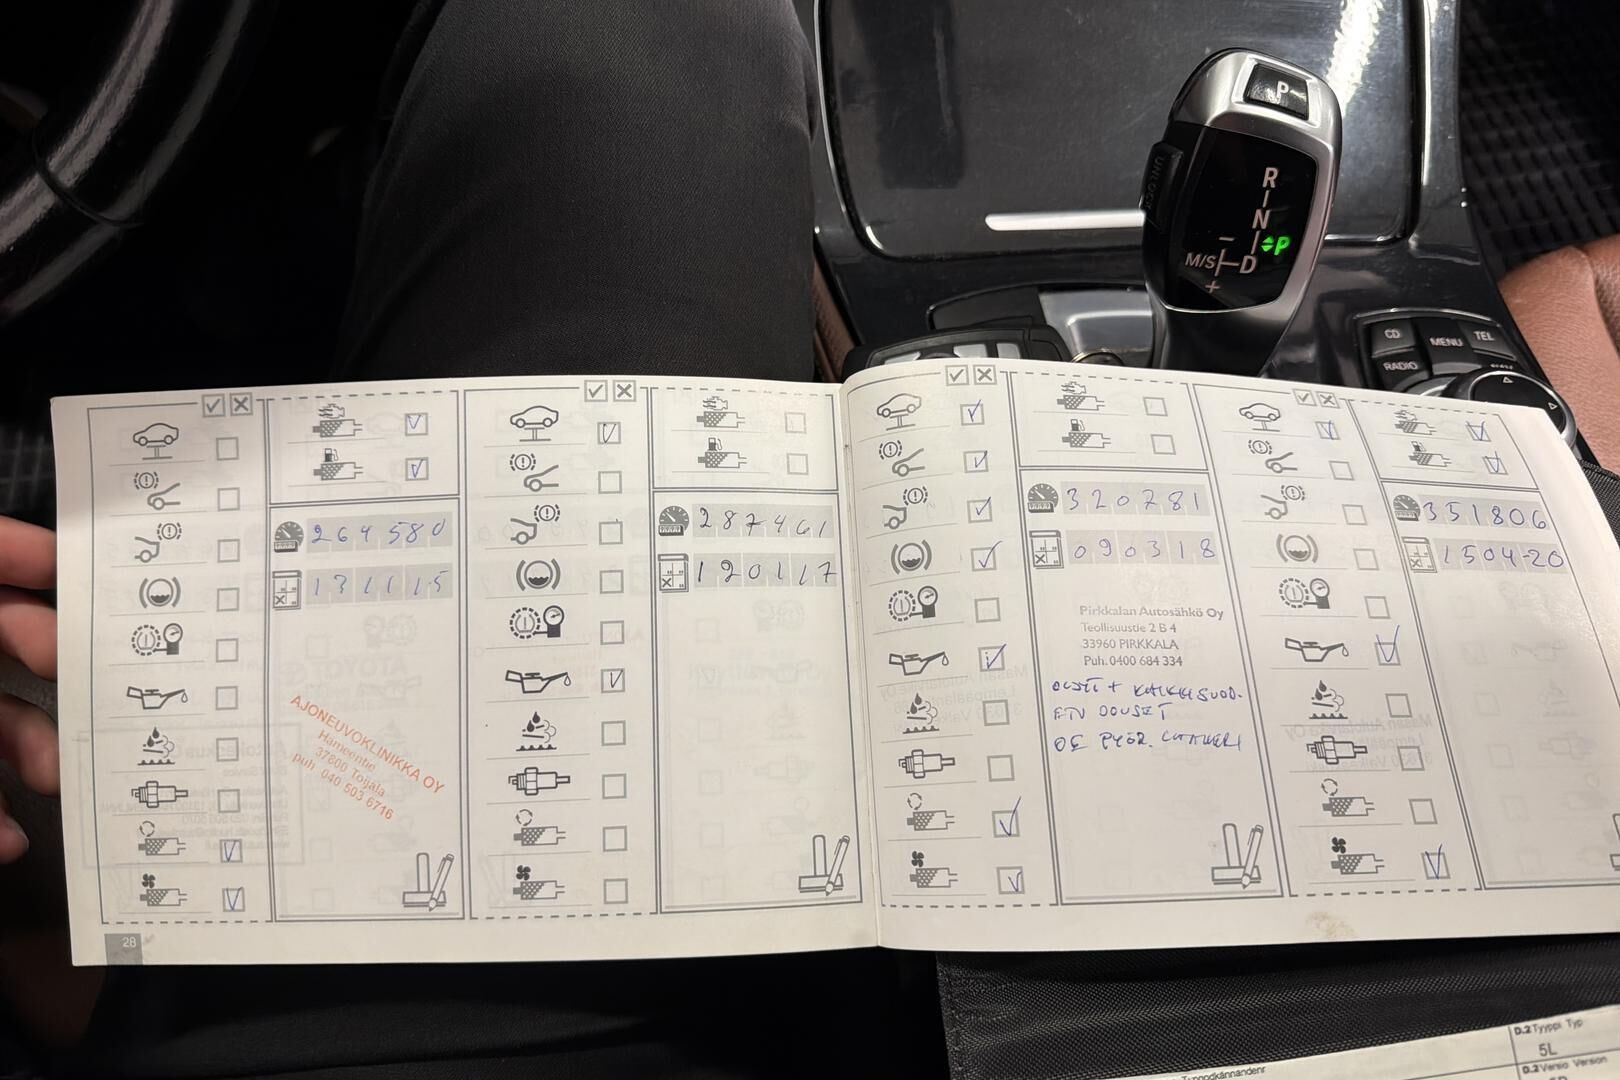 P
UNLOCK
R
N
P
M/S
D
CD
MENU
TEL
RADIO
264580
131115
AJONEUVOKLINIKKA OY
Hämeentie
37800 Toijala
puh. 040 503 6716
28
287461
120117
320781
090318
Pirkkalan Autosähkö Oy
Teollisuustie 2 B 4
33960 PIRKKALA
Puh. 0400 684 334
351806
150420
D.2 Tyyppi Typ
5L
D.2 Versio Version